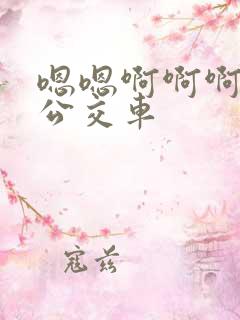 嗯嗯啊啊啊
公交车
寇兹